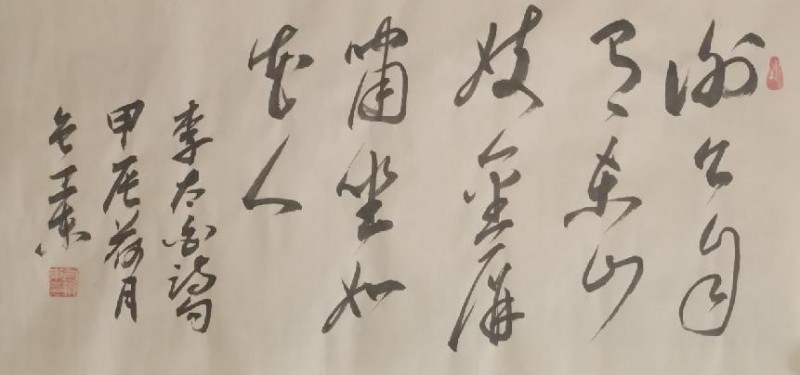 謝公自
有東山
妓金屏
嘯坐如
花人
李太白詩句
甲辰荷月